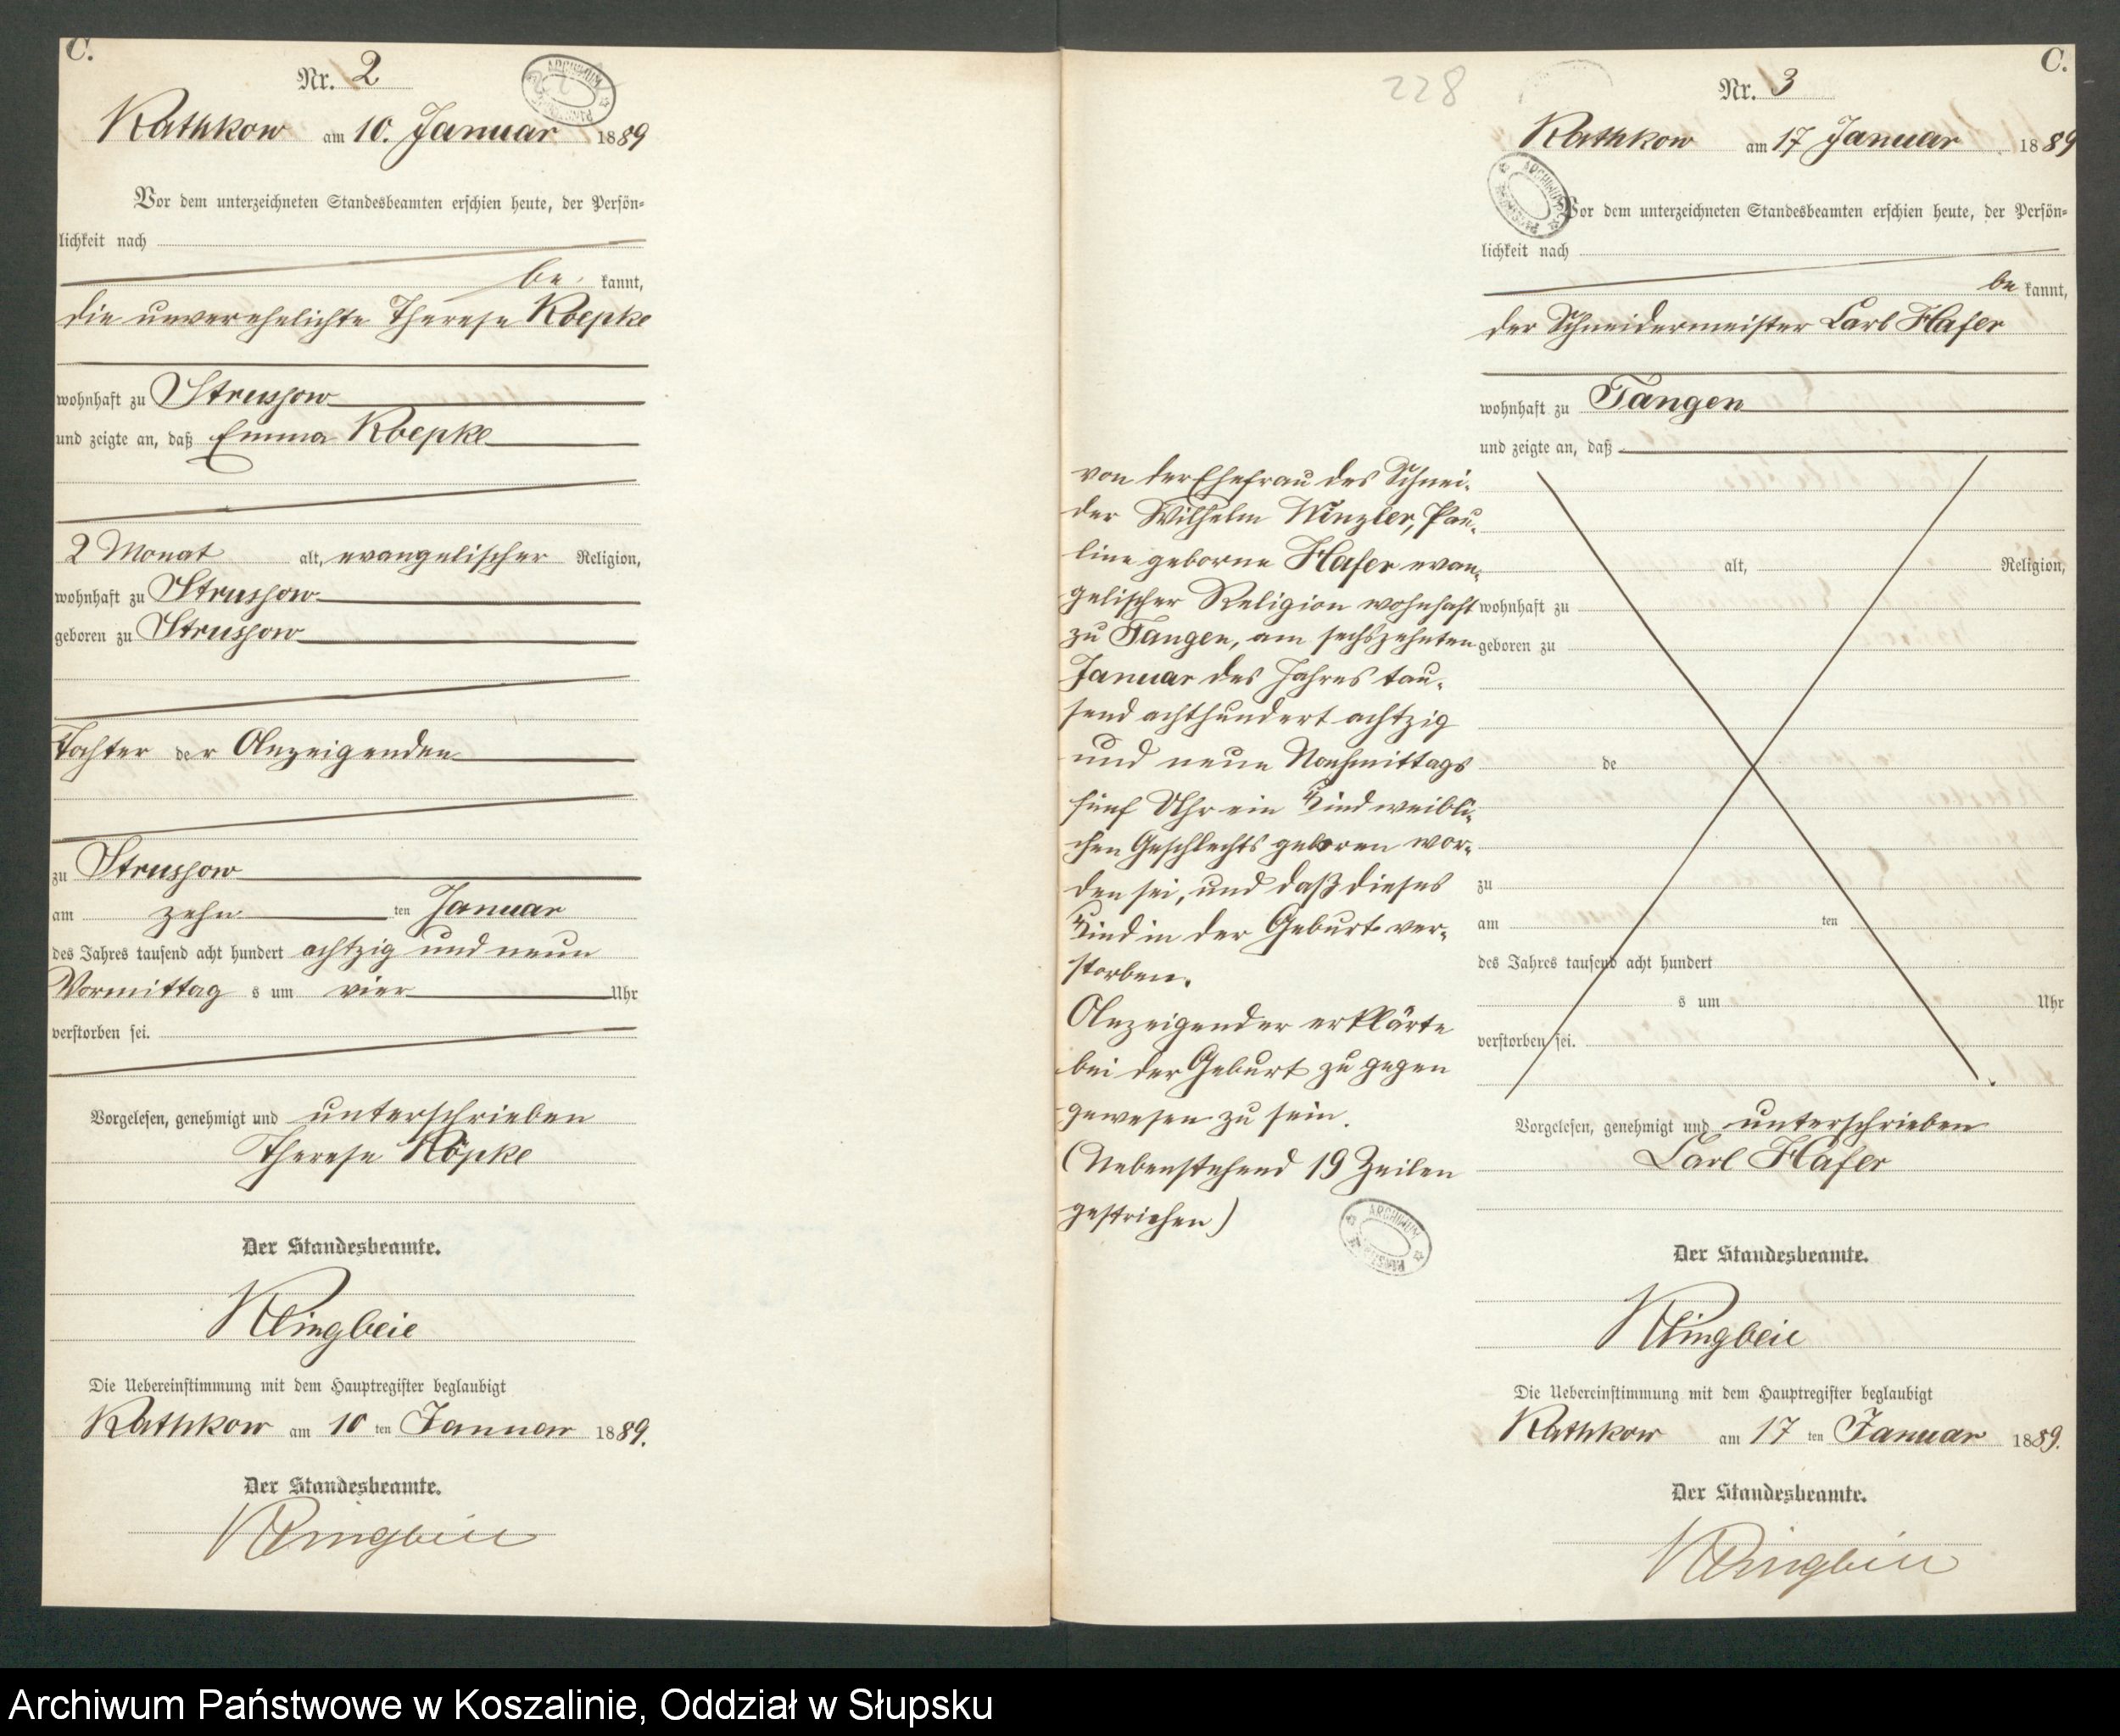 C.
Nr. 2
ARCHIWUM
Rathkow am 10. Januar 1889
Vor dem unterzeichneten Standesbeamten erschien heute, der Persön-
lichkeit nach
be kannt,
die unverehelichte Therese Roepke
wohnhaft zu Strussow
und zeigte an, daß Emma Roepke
2 Monat alt, evangelischer Religion,
wohnhaft zu Strussow
geboren zu Strussow
Tochter der Anzeigenden
zu Strussow
am zehn ten Januar
des Jahres tausend acht hundert achtzig und neun
Vormittag s um vier Uhr
verstorben sei.
Vorgelesen, genehmigt und unterschrieben
Therese Röpke
Der Standesbeamte.
Klingbeil
Die Uebereinstimmung mit dem Hauptregister beglaubigt
Rathkow am 10 ten Januar 1889.
Der Standesbeamte.
Klingbeil
228
C.
Nr. 3
Rathkow am 17 Januar 1889
ARCHIWUM
Vor dem unterzeichneten Standesbeamten erschien heute, der Persön-
lichkeit nach
be kannt,
der Schneidermeister Carl Hafer
wohnhaft zu Tangen
und zeigte an, daß
von der Ehefrau des Schnei-
der Wilhelm Winzler, Pau-
line geborne Hafer evan-
gelischer Religion wohnhaft
zu Tangen, am sechszehnten
Januar des Jahres tau-
send achthundert achtzig
und neun Nachmittags
fünf Uhr ein Kind weibli-
chen Geschlechts geboren wor-
den sei, und daß dieses
Kind in der Geburt ver-
storben.
Anzeigender erklärte
bei der Geburt zu gegen
gewesen zu sein.
(Nebenstehend 19 Zeilen
gestrichen)
ARCHIWUM
alt, Religion,
wohnhaft zu
geboren zu
de
zu
am ten
des Jahres tausend acht hundert
s um Uhr
verstorben sei.
Vorgelesen, genehmigt und unterschrieben
Carl Hafer
Der Standesbeamte.
Klingbeil
Die Uebereinstimmung mit dem Hauptregister beglaubigt
Rathkow am 17 ten Januar 1889.
Der Standesbeamte.
Klingbeil
Archiwum Państwowe w Koszalinie, Oddział w Słupsku